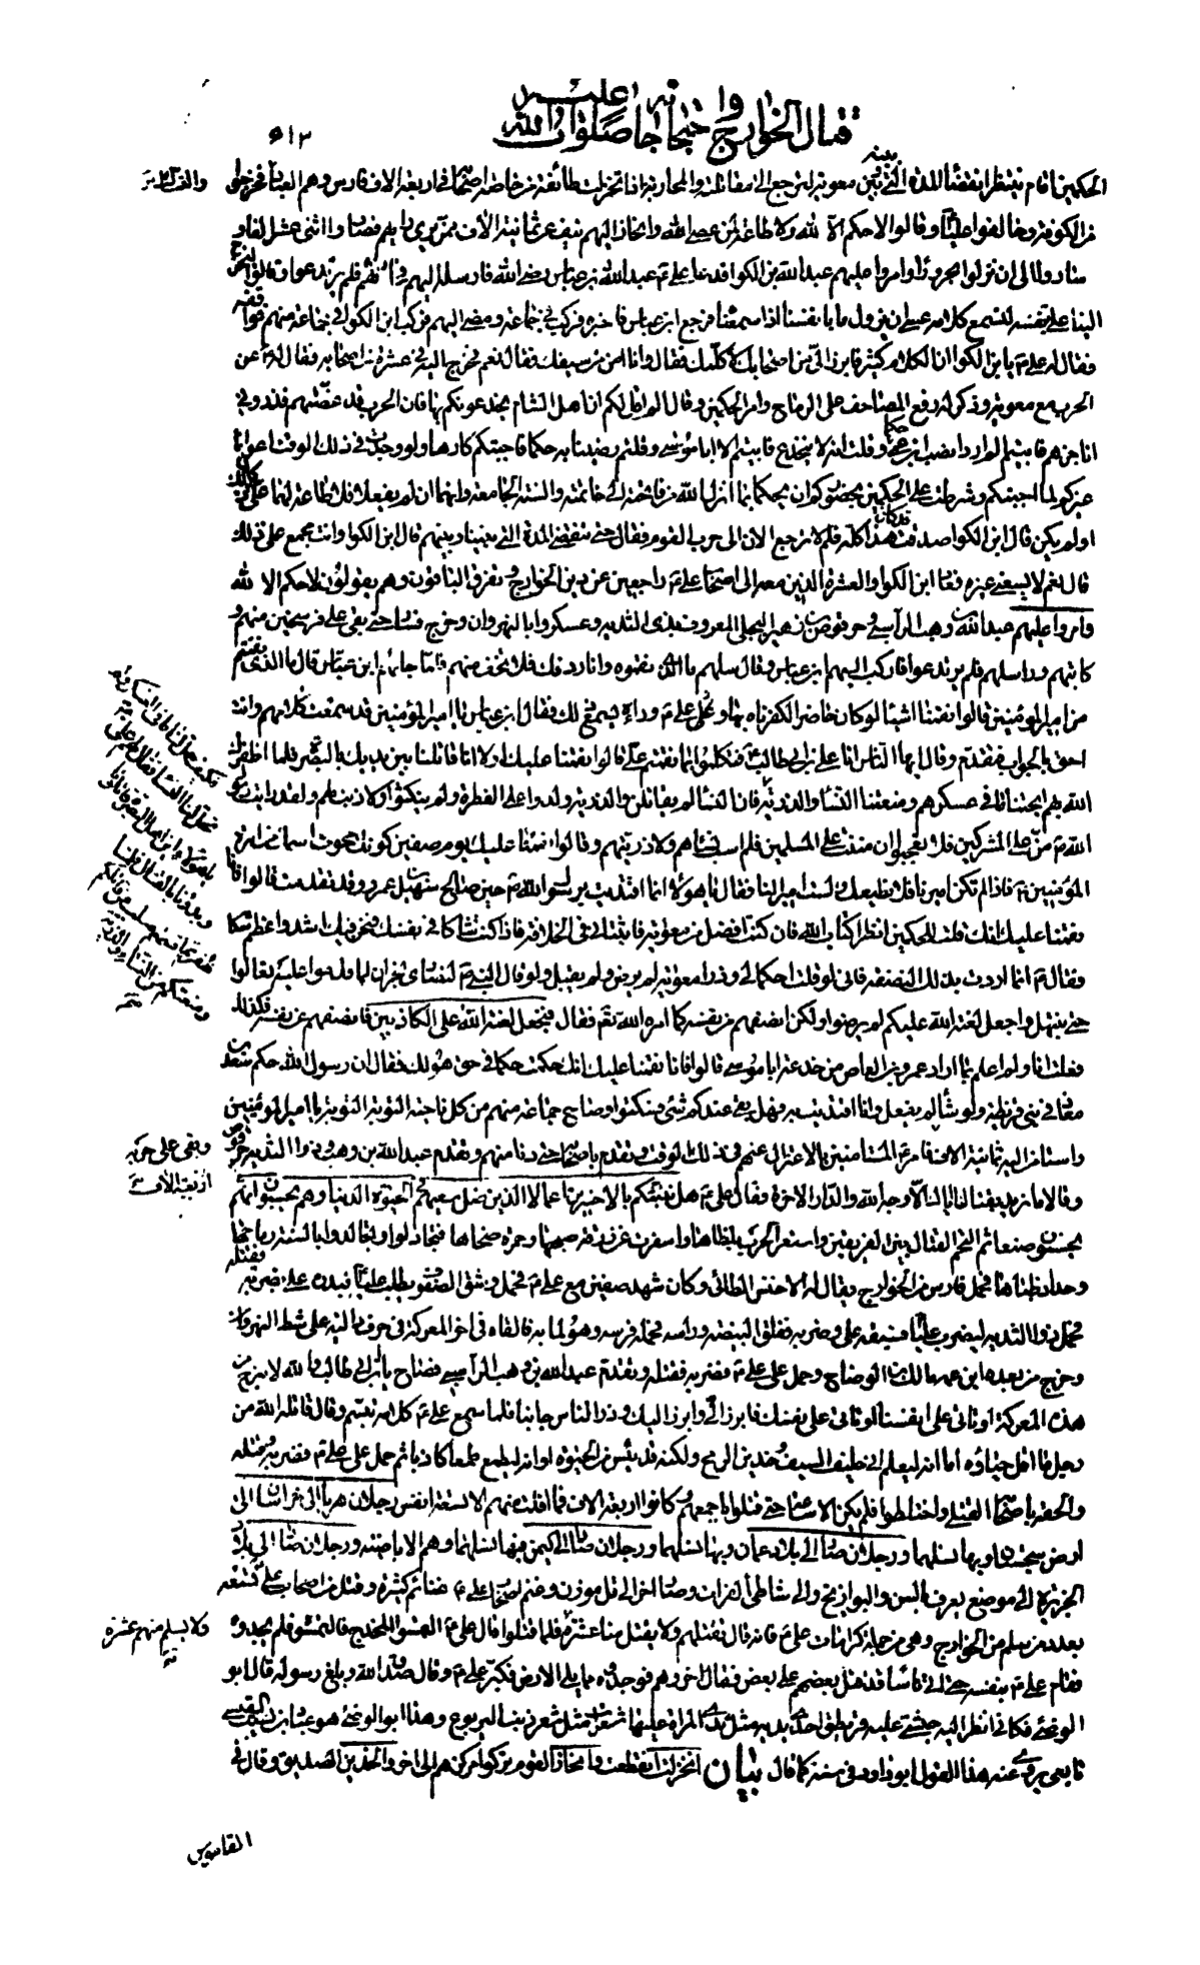 قتال الخوارج واحتجاجاته صلوات الله عليه
٦١٢
الحكمين اقام ينتظر انقضاء المدة التي بينه وبين معوية ليرجع الى مقاتلته والمحاربة اذ انخزلت طائفة من خاصة اصحابه في اربعة الاف فارس وهم العباد فخرجوا
من الكوفة وخالفوا عليا وقالوا لا حكم الا لله ولا طاعة لمن عصى الله وانحاز اليهم نيف عن ثمانية الاف ممن يرى رايهم فصاروا اثنى عشر الفا و
ساروا الى ان نزلوا بحرورا وامروا عليهم عبد الله بن الكوا فدعا على ع عبد الله بن عباس رضى الله فارسله اليهم فلم يرتدعوا وقالوا ليخرج
الينا على بنفسه لنسمع كلامه عسى ان يزول ما بانفسنا اذا سمعناه فرجع ابن عباس فاخبره فركب في جماعة ومضى اليهم فركب ابن الكوا في جماعة منهم فواقفه
فقال له على ع يا بن الكوا ان الكلام كثير فابرز الى من اصحابك لاكلمك فقال وانا امن من سيفك فقال نعم فخرج اليه في عشرة من اصحابه فقال له ع عن
الحرب مع معوية وذكر له رفع المصاحف على الرماح وامر الحكمين وقال الم اقل لكم ان اهل الشام يخدعونكم بها فان الحرب قد عضتهم فذروني
اناجزهم فابيتم الم ارد انصب ابن عمى حكما وقلت انه لا ينخدع فابيتم الا ابا موسى وقلتم رضينا به حكما فاجبتكم كارها ولو وجدت في ذلك الوقت اعوانا
غيركم لما اجبتكم وشرطت على الحكمين بحضوركم ان يحكما بما انزل الله من فاتحته الى خاتمته والسنة الجامعة وانهما ان لم يفعلا فلا طاعة لهما على كان ذلك
او لم يكن قال ابن الكوا صدقت قد كان هذا كله فلم لا ترجع الان الى حرب القوم فقال حتى تنقضى المدة التي بيننا وبينهم قال ابن الكوا وانت مجمع على ذلك
قال نعم لا يسعني غيره فعاد ابن الكوا والعشرة الذين معه الى اصحاب على ع راجعين عن دين الخوارج وتفرق الباقون وهم يقولون لا حكم الا لله
وامروا عليهم عبد الله بن وهب الراسبي وحرقوص بن زهير البجلي المعروف بذى الثدية وعسكروا بالنهروان وخرج فسار حتى بقى على فرسخين منهم و
كاتبهم وراسلهم فلم يرتدعوا فاركب اليهم ابن عباس وقال سلهم ما الذى نقموه وانا ردفك فلا تخف منهم فلما جائهم ابن عباس قال ما الذى نقمتم
من امير المؤمنين قالوا نقمنا اشياء لو كان حاضرا لكفرناه بها وعلى ع وراءه يسمع ذلك فقال ابن عباس يا امير المؤمنين قد سمعت كلامهم وانت
احق بالجواب فتقدم وقال ايها الناس انا على بن ابي طالب فتكلموا بما نقمتم على قالوا نقمنا عليك اولا انا قاتلنا بين يديك بالبصرة فلما اظفرك
الله بهم ابحتنا ما في عسكرهم ومنعتنا النساء والذرية فان النساء لم يقاتلن والذرية ولدوا على الفطرة ولم ينكثوا ولا ذنب لهم ولقد رايت رسول
الله ص من على المشركين فلا تعجبوا ان مننت على المسلمين فلم اسب نسائهم ولا ذريتهم وقالوا نقمنا عليك يوم صفين كونك محوت اسمك من امرة
المؤمنين فاذا لم تكن اميرنا فلا نطيعك ولست اميرا لنا فقال يا هؤلاء انما اقتديت برسول الله ص حين صالح سهيل بن عمرو وقد تقدمت قالوا فانا
نقمنا عليك انك قلت للحكمين انظرا كتاب الله فان كنت افضل من معوية فاثبتاني في الخلافة فاذا كنت شاكا في نفسك فنحن فيك اشد واعظم شكا
فقال ع انما اردت بذلك النصفة فاني لو قلت احكما لي وذرا معوية لم يرض ولم يقبل ولو قال النبي ص لنصارى نجران لما قدموا عليه تعالوا
حتى نبتهل واجعل لعنة الله عليكم لم يرضوا ولكن انصفهم من نفسه كما امره الله تعالى فقال فنجعل لعنة الله على الكاذبين فانصفهم عن نفسه فكذلك
فعلت انا ولم اعلم بما اراد عمرو بن العاص من خدعة ابا موسى قالوا فانا نقمنا عليك انك حكمت حكما في حق هو لك فقال ان رسول الله حكم سعد بن
معاذ في بني قريظة ولو شاء لم يفعل وانا اقتديت به فهل بقى عندكم شئ فسكتوا وصاح جماعة منهم من كل ناحية التوبة التوبة يا امير المؤمنين
واستامن اليه ثمانية الاف فامر ع المستامنين بالاعتزال عنهم في ذلك الوقت وتقدم باصحابه حتى دنا منهم وتقدم عبد الله بن وهب وذو الثدية حرقوص
وقالا ما نريد بقتالنا اياك الا وجه الله والدار الاخرة فقال على ع هل ننبئكم بالاخسرين اعمالا الذين ضل سعيهم في الحيوة الدنيا وهم يحسبون انهم
يحسنون صنعا ثم التحم القتال بين الفريقين واستعر الحرب بلظاها واسفرت عن زرقة صبحها وحمرة ضحاها فتجادلوا وتجالدوا بالسنة رماحها
وحداد ظباها فحمل فارس من الخوارج يقال له الاخنس الطائي وكان شهد صفين مع على ع فحمل وشق الصفوف يطلب عليا فبدره على بضربة فقتله
فحمل ذو الثدية ليضرب عليا فسبقه على وضربه ففلق البيضة وراسه فحمله فرسه وهو لما به فالقاه في اخر المعركة في جرف دالية على شط النهروان
وخرج من بعده ابن عمه مالك بن الوضاح وحمل على على ع فضربه فقتله وتقدم عبد الله بن وهب الراسبي فصاح يا بن ابي طالب والله لا نبرح من
هذه المعركة او تاتي على انفسنا او ناتي على نفسك فابرز الى وابرز اليك وذر الناس جانبا فلما سمع على ع كلامه تبسم وقال قاتله الله من
رجل ما اقل حياؤه اما انه ليعلم اني حليف السيف وخدين الرمح ولكنه قد يئس من الحيوة او انه ليطمع طمعا كاذبا ثم حمل على على ع فضربه فقتله
والحقه باصحابه القتلى واختلطوا فلم يكن الا ساعة حتى قتلوا باجمعهم وكانوا اربعة الاف فما افلت منهم الا تسعة انفس رجلان هربا الى خراسان الى
ارض سجستان وبها نسلهما ورجلان صارا الى بلاد عمان وبها نسلهما ورجلان صارا الى اليمن فيها نسلهما وهم الاباضية ورجلان صارا الى بلاد
الجزيرة الى موضع يعرف بالسن والبوازيج والى شاطئ الفرات وصار اخر الى تل موزن وغنم اصحاب على ع غنائم كثيرة وقتل من اصحاب على ع تسعة
بعدد من سلم من الخوارج وهي من جملة كرامات على ع فانه قال نقتلهم ولا يقتل منا عشرة فلما قتلوا قال على ع التمسوا المخدج فالتمسوه فلم يجدوه
فقام على ع بنفسه حتى اتى ناسا قد قتل بعضهم على بعض فقال اخروهم فوجدوه مما يلي الارض فكبر على ع وقال صدق الله وبلغ رسوله قال ابو
الوضئ فكاني انظر اليه حبشي عليه قريطق احدى يديه مثل ثدى المراة عليها شعرات مثل شعر ذنب اليربوع وهذا ابو الوضئ هو عباد بن نسيب القيسي
تابعي يروى عنه هذا القول ابو داود في سننه كما قال بيان انخزلت انقطعت وانحاز القوم تركوا مركزهم الى اخر والخدين الصديق وقال في
والف ٢
ولا يسلم منهم عشرة
وبقى على حربه
اربعة الاف
القاموس